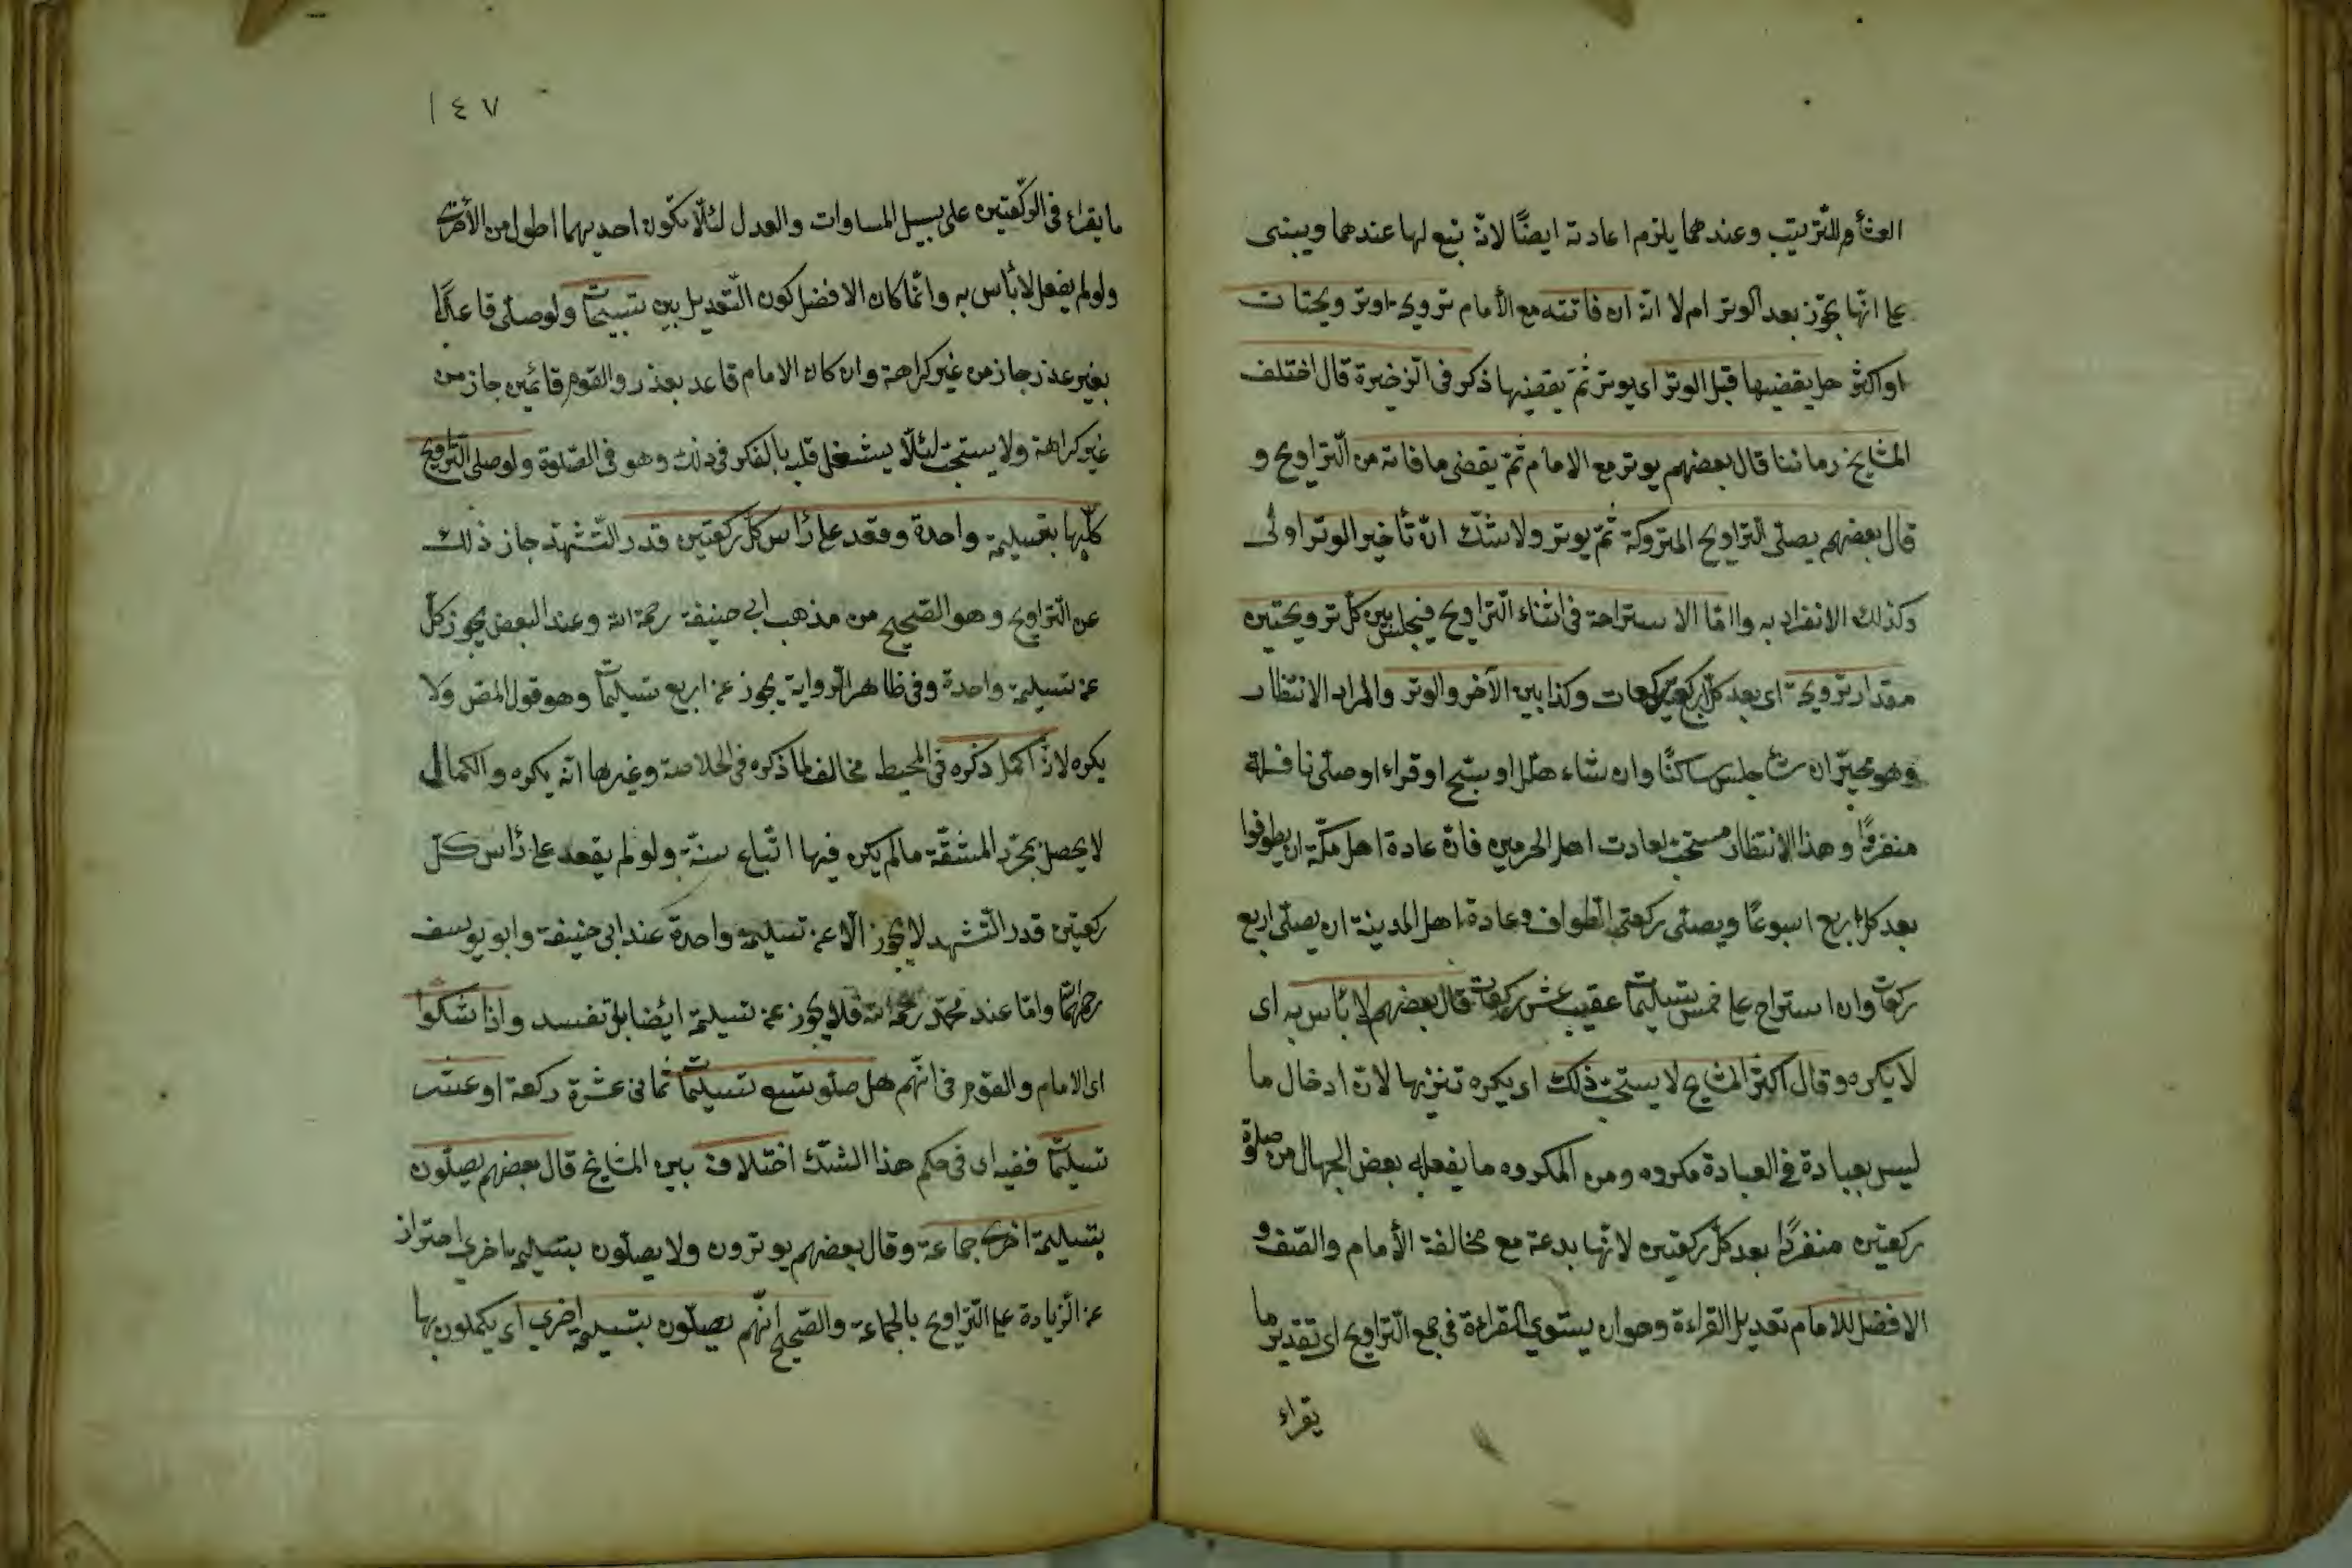 العشأ وللترتيب وعندهما يلزم اعادته ايضًا لانه تبع لها عندهما ويبنى
على انها يجوز بعد الوتر ام لا انه ان فاتته مع الأمام ترويحة او ترويحتات
او اكثر هل يقضيها قبل الوتر اى يوتر ثمّ يقضيها ذكر فى الزخيرة قال اختلف
المشايخ زماننا قال بعضهم يوتر مع الامام ثمّ يقضى ما فاته من التّراويح و
قال بعضهم يصلّى التراويح المتروكة ثمّ يوتر ولا شكّ انّ تأخير الوتر اولى
وكذلك الانفراد به وامّا الاستراحة فى اثناء التّراويح فيجلس بين كلّ ترويحتين
مقدار ترويحة اى بعد كلّ اربع ركعات وكذا بين الآخر والوتر والمراد الانتظار
وهو مخيّر ان شاء جلس ساكتًا وان شاء هلّل او سبّح او قراء او صلّى نافلة
منفردًا وهذا الانتظار مستحبّ لعادت اهل الحرمين فانّ عادة اهل مكّة ان يطوفوا
بعد كل اربع اسبوعًا ويصلّى ركعتى الطواف وعادة اهل المدينة ان يصلّى اربع
ركعات وان استراح على خمس تسليمات عقيب عشر ركعات قال بعضهم لا بأس به اى
لا يكره وقال اكثر المشايخ لا يستحبّ ذلك اى يكره تنزيها لانّ ادخال ما
ليس بعبادة فى العبادة مكروه ومن المكروه ما يفعله بعض الجهال من صلوة
ركعتين منفردًا بعد كلّ ركعتين لانّها بدعة مع مخالفة الأمام والصّف و
الافضل للامام تعديل القراءة وهو ان يستوى القراءة فى جمع التّراويح اى تقدير ما
يقراء
١٤٧
ما يقراء فى الركعتين على سبيل المساوات والعدل لئلّا يكون احديهما اطول من الأخرى
ولو لم يفعل لا بأس به وانّما كان الافضل كون التّعديل بين تسبيحات ولو صلّى قاعدًا
بغير عذر جاز من غير كراهة وان كان الامام قاعد بعذر والقوم قائمين جاز من
غير كراهة ولا يستحبّ لئلّا يشغل قلبه بالفكر فى ذلك وهو فى الصّلوة ولو صلى التّراويح
كلّها بتسليمة واحدة وقعد على رأس كلّ ركعتين قدر التّشهّد جاز ذلك
عن التّراويح وهو الصّحيح من مذهب ابى حنيفة رحمة الله وعند البعض يجوز كلّ
عن تسليمة واحدة وفى ظاهر الرواية يجوز عن اربع تسليمات وهو قول المص ولا
يكره لانّه اكمل ذكره فى المحيط مخالف لما ذكره فى الخلاصة وغيرها انّه يكره والكمال
لا يحصل بمجرّد المشقّة ما لم يكن فيها اتّباع سنّة ولو لم يقعد على رأس كلّ
ركعتين قدر التّشهد لا يجوز الّا عن تسليمة واحدة عند ابى حنيفة وابو يوسف
رحمهما الله وامّا عند محمّد رحمه الله فلا يجوز عن تسليمة ايضا بل تفسد واذا شكّوا
اى الامام والقوم فى انّهم هل صلو تسع تسليمات ثمانى عشرة ركعة او عشر
تسليمات ففيه اى فى حكم هذا الشّك اختلاف بين المشايخ قال بعضهم يصلّون
بتسليمة اخرى جماعة وقال بعضهم يوترون ولا يصلّون بتسليمة اخرى احتراز
عن الزيادة على التّراويح بالجماعة والصّحيح انّهم يصلّون بتسليمة اخرى اى يكملون بها